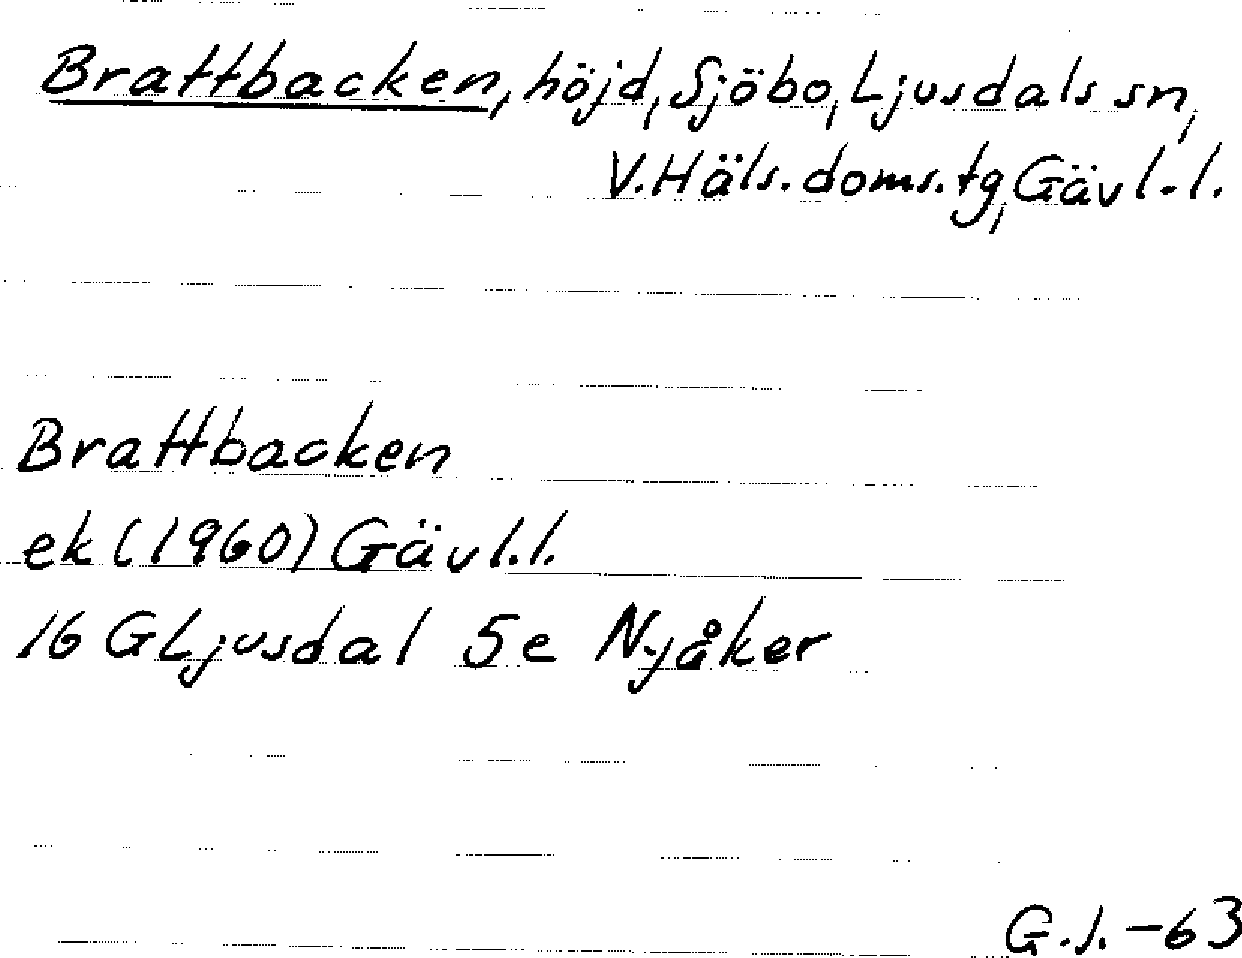 Brattbacken, höjd, Sjöbo, Ljusdals sn,
V. Häls. doms. tg, Gävl. l.
Brattbacken
ek (1960) Gävl. l.
16 G Ljusdal 5e Nyåker
G.l. -63